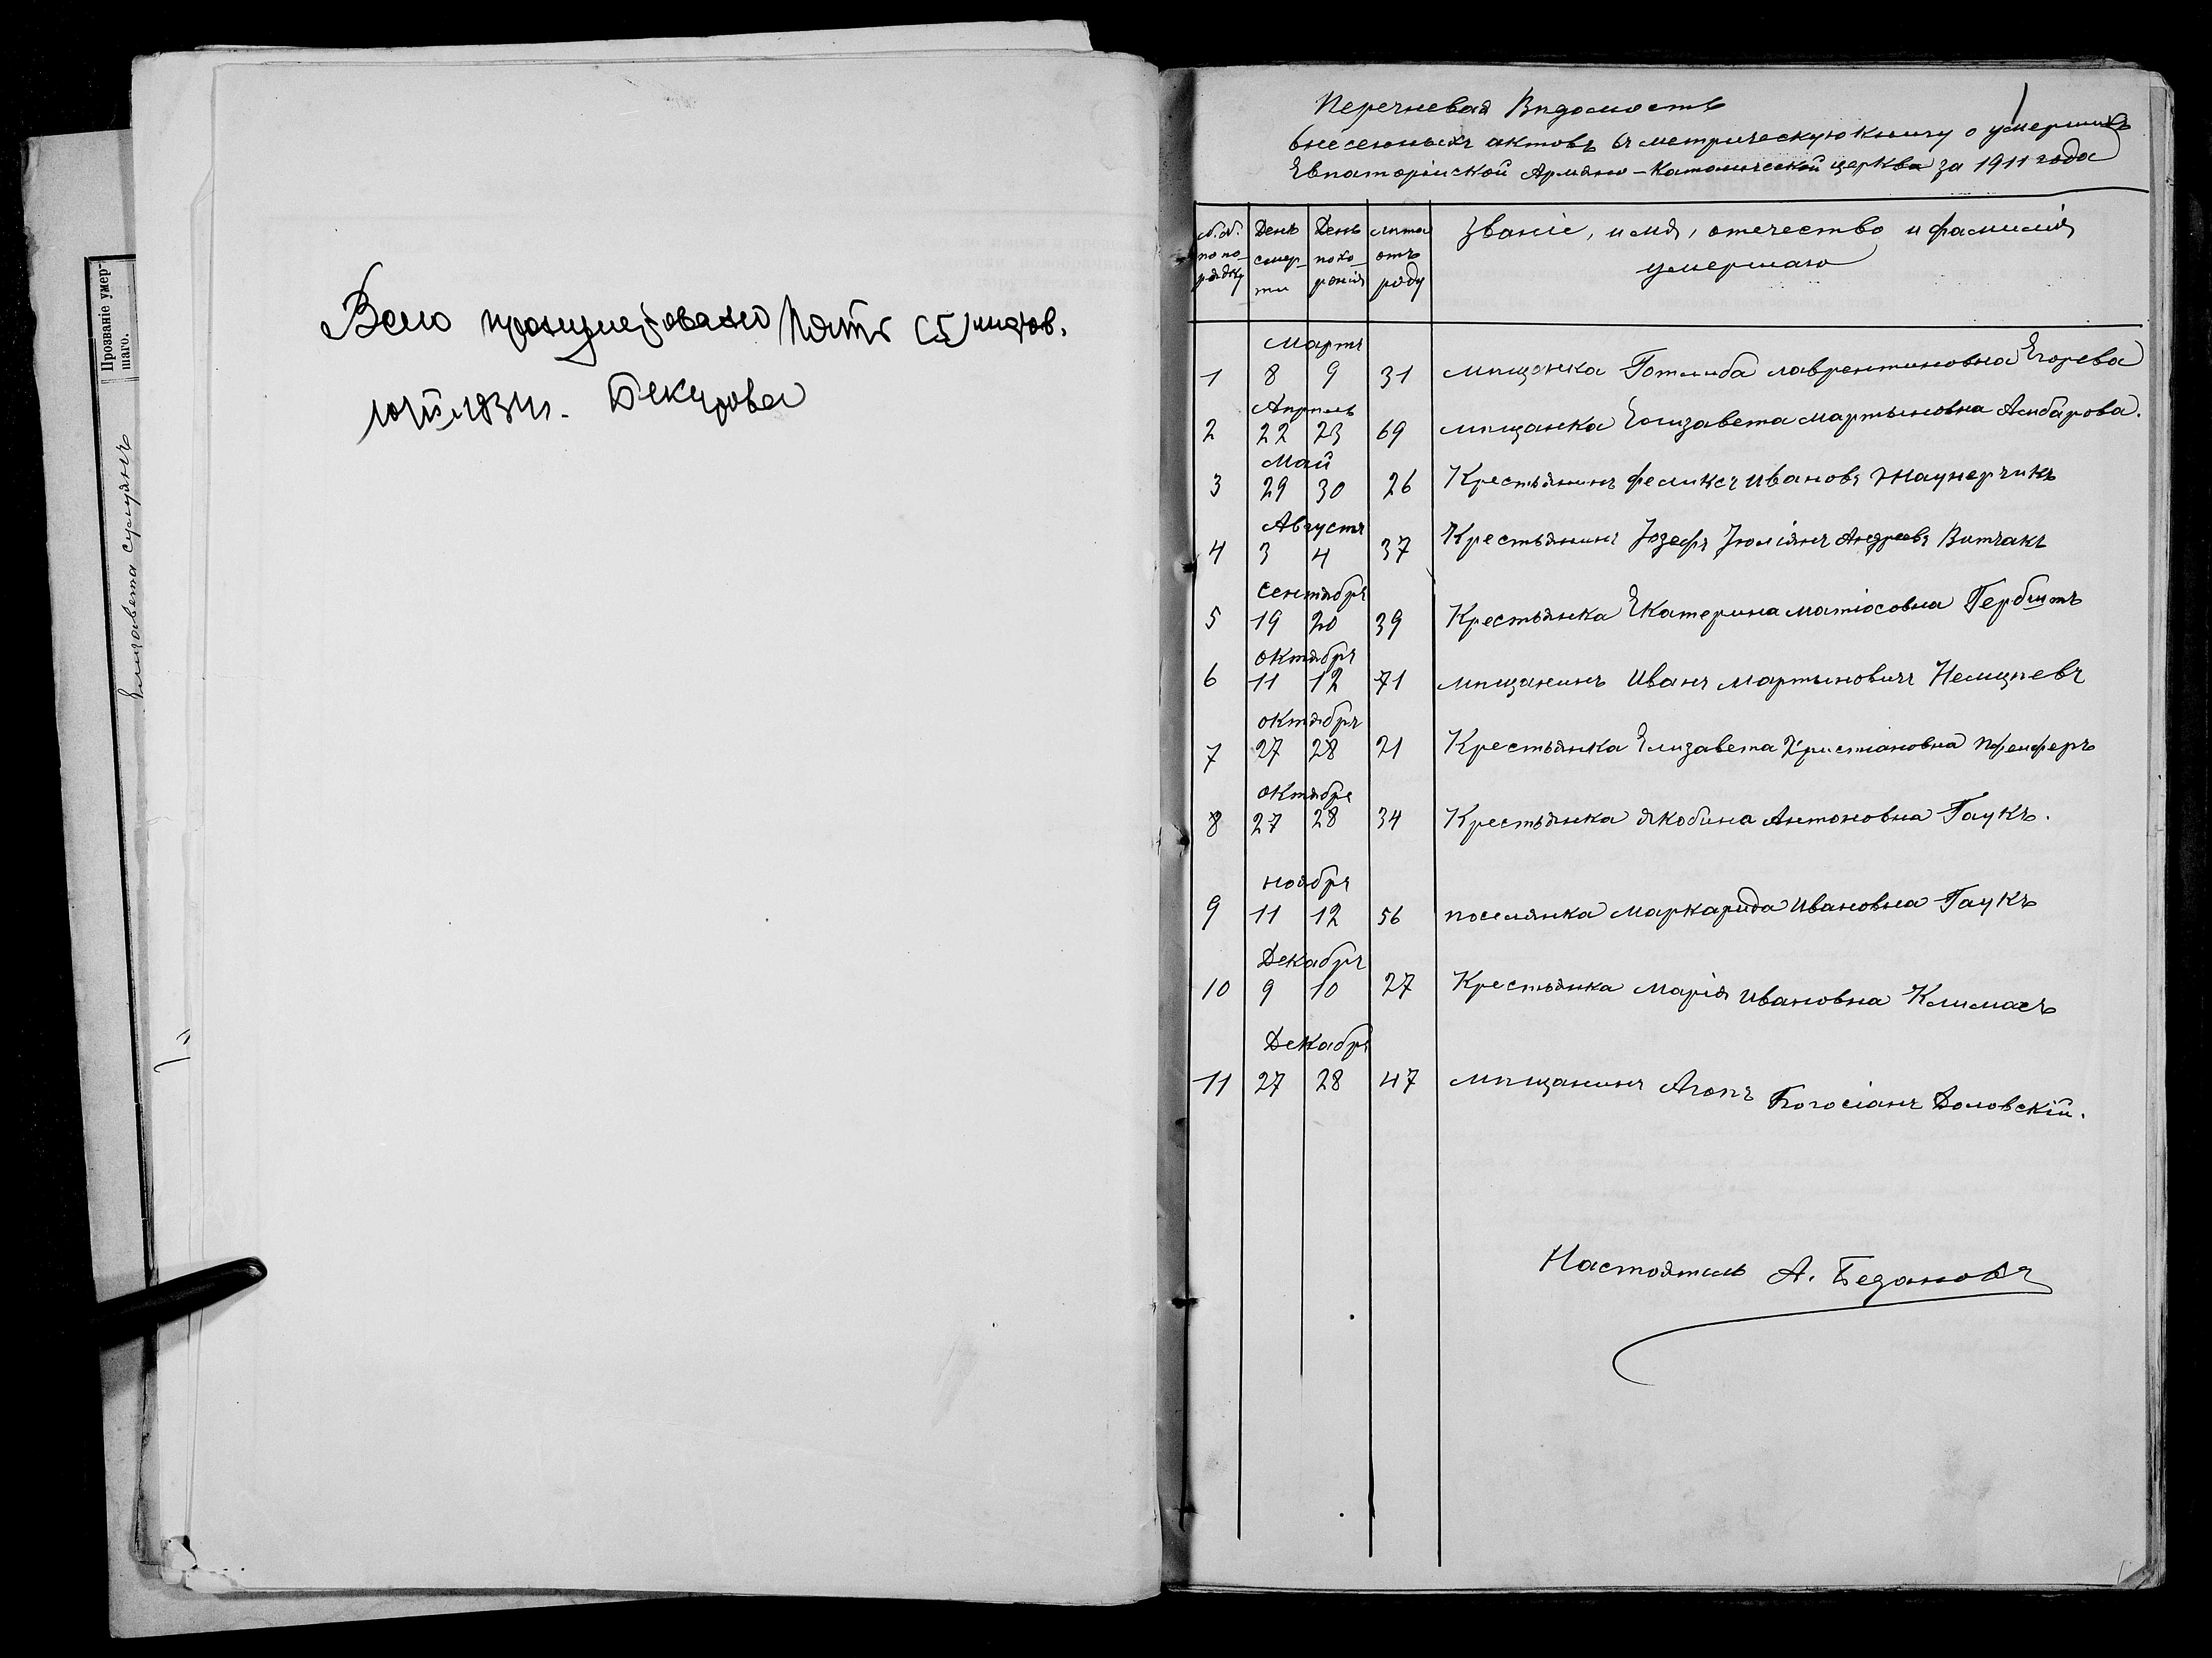 Прозваніе умер-
шаго.
Елизавета
Всего пронумеровано пять (5) листов.
Бекирова
1
Перечневая Вѣдомость
внесенныхъ актовъ въ метрическую книгу о умершихъ
Евпаторійской Армяно-Католической церкви за 1911 года
№.№. по порядку | День смерти | День похоронія | лѣта отъ роду | Званіе, имя, отечество и фамилія умершаго
Мартъ
1 8 9 31 мѣщанка Готлиба Лаврентиновна Егорева
Апрѣль
2 22 23 69 мѣщанка Елизавета Мартыновна Амбарова.
Май
3 29 30 26 Крестьянинъ Феликсъ Ивановъ
Августъ
4 3 4 37 Крестьянинъ Іозефъ Іюліянъ Андреевъ Витчакъ
сентябрь
5 19 20 39 Крестьянка Екатерина Матіосовна Гербштъ
октябрь
6 11 12 71 мѣщанинъ Иванъ Мартыновичъ Немцневъ
октябрь
7 27 28 21 Крестьянка Елизавета Христіановна Пфейферъ
октябрь
8 27 28 34 Крестьянка Якобина Антоновна Гаукъ.
ноябрь
9 11 12 56 поселянка Маркарида Ивановна Гаукъ
Декабрь
10 9 10 27 Крестьянка Марія Ивановна Климахъ
Декабрь
11 27 28 47 мѣщанинъ Агопъ Богосіанъ Доловскій.
Настоятель А. Безановъ